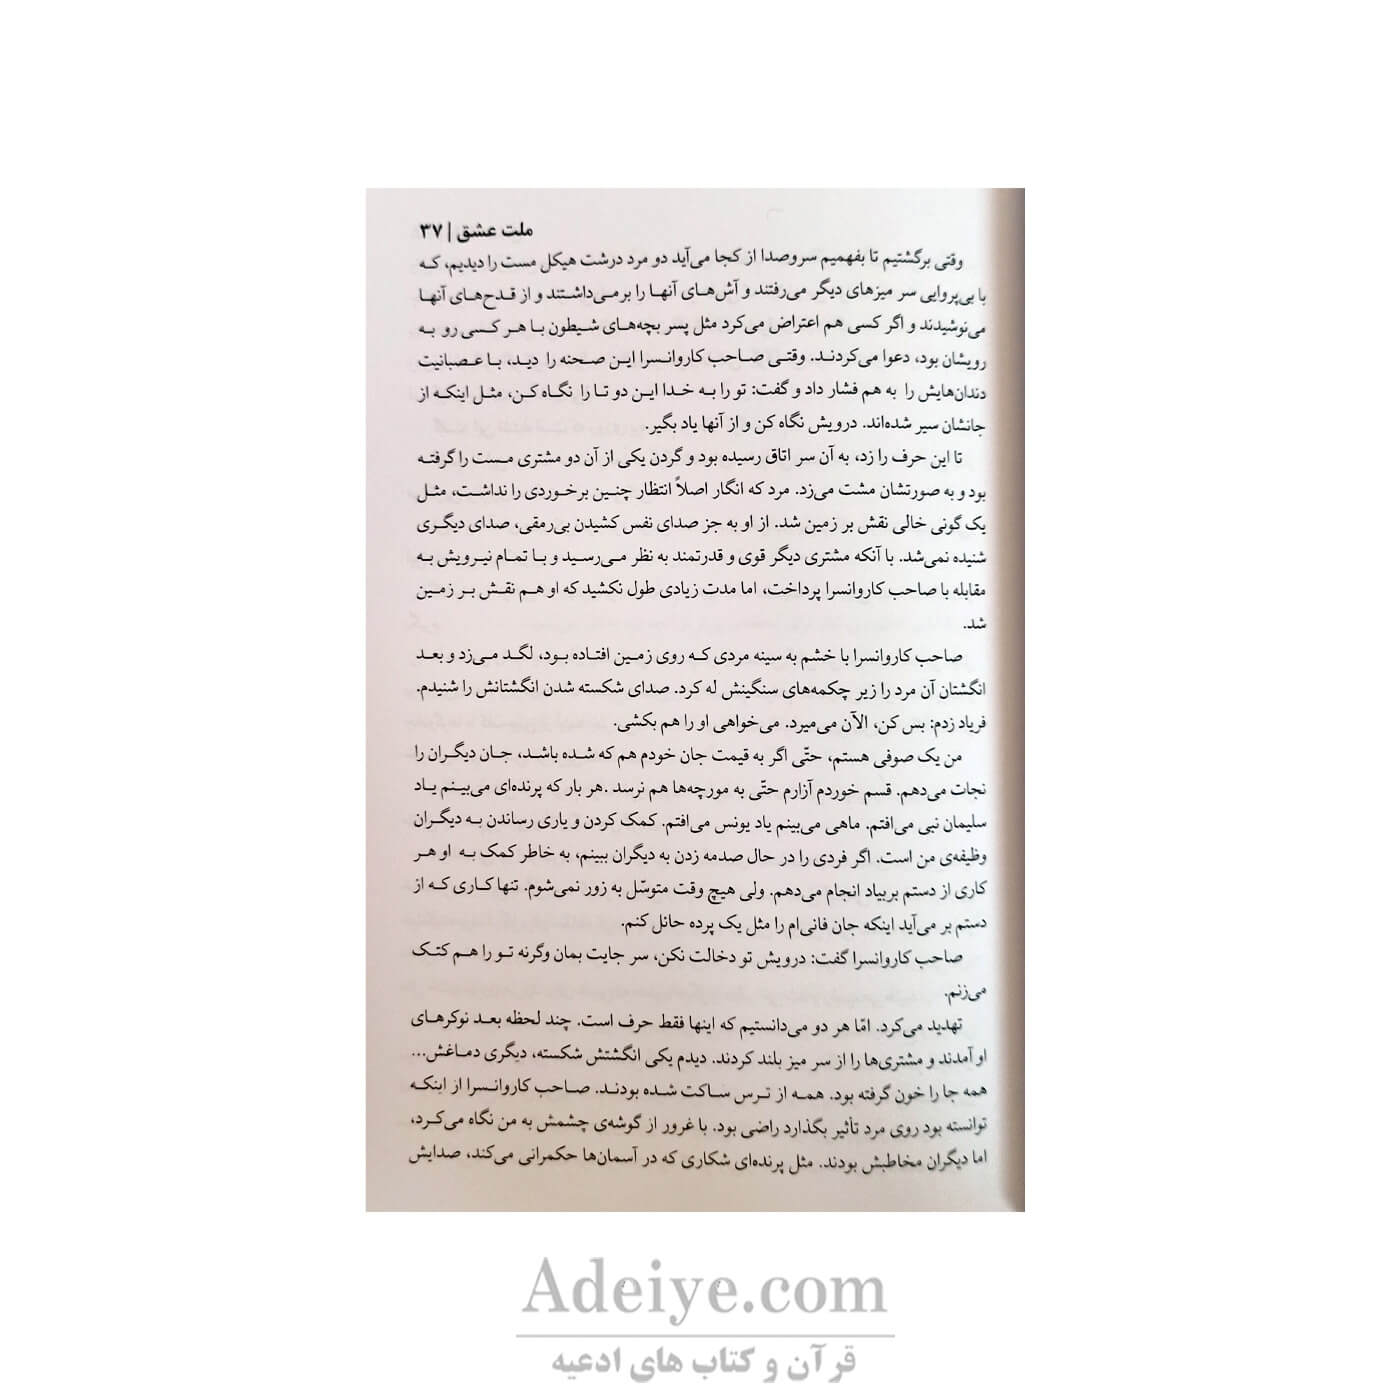 ملت عشق | ۳۷
وقتی برگشتیم تا بفهمیم سروصدا از کجا می‌آید دو مرد درشت هیکل مست را دیدیم، که
با بی‌پروایی سر میزهای دیگر می‌رفتند و آش‌های آنها را برمی‌داشتند و از قدح‌های آنها
می‌نوشیدند و اگر کسی هم اعتراض می‌کرد مثل پسر بچه‌های شیطون با هر کسی رو به
رویشان بود، دعوا می‌کردند. وقتی صاحب کاروانسرا این صحنه را دید، با عصبانیت
دندان‌هایش را به هم فشار داد و گفت: تو را به خدا این دو تا را نگاه کن، مثل اینکه از
جانشان سیر شده‌اند. درویش نگاه کن و از آنها یاد بگیر.
تا این حرف را زد، به آن سر اتاق رسیده بود و گردن یکی از آن دو مشتری مست را گرفته
بود و به صورتشان مشت می‌زد. مرد که انگار اصلاً انتظار چنین برخوردی را نداشت، مثل
یک گونی خالی نقش بر زمین شد. از او به جز صدای نفس کشیدن بی‌رمقی، صدای دیگری
شنیده نمی‌شد. با آنکه مشتری دیگر قوی و قدرتمند به نظر می‌رسید و با تمام نیرویش به
مقابله با صاحب کاروانسرا پرداخت، اما مدت زیادی طول نکشید که او هم نقش بر زمین
شد.
صاحب کاروانسرا با خشم به سینه مردی که روی زمین افتاده بود، لگد می‌زد و بعد
انگشتان آن مرد را زیر چکمه‌های سنگینش له کرد. صدای شکسته شدن انگشتانش را شنیدم.
فریاد زدم: بس کن، الآن می‌میرد. می‌خواهی او را هم بکشی.
من یک صوفی هستم، حتّی اگر به قیمت جان خودم هم که شده باشد، جان دیگران را
نجات می‌دهم. قسم خوردم آزارم حتّی به مورچه‌ها هم نرسد .هر بار که پرنده‌ای می‌بینم یاد
سلیمان نبی می‌افتم. ماهی می‌بینم یاد یونس می‌افتم. کمک کردن و یاری رساندن به دیگران
وظیفه‌ی من است. اگر فردی را در حال صدمه زدن به دیگران ببینم، به خاطر کمک به او هر
کاری از دستم بربیاد انجام می‌دهم. ولی هیچ وقت متوسّل به زور نمی‌شوم. تنها کاری که از
دستم بر می‌آید اینکه جان فانی‌ام را مثل یک پرده حائل کنم.
صاحب کاروانسرا گفت: درویش تو دخالت نکن، سر جایت بمان وگرنه تو را هم کتک
می‌زنم.
تهدید می‌کرد. امّا هر دو می‌دانستیم که اینها فقط حرف است. چند لحظه بعد نوکرهای
او آمدند و مشتری‌ها را از سر میز بلند کردند. دیدم یکی انگشتش شکسته، دیگری دماغش...
همه جا را خون گرفته بود. همه از ترس ساکت شده بودند. صاحب کاروانسرا از اینکه
توانسته بود روی مرد تأثیر بگذارد راضی بود. با غرور از گوشه‌ی چشمش به من نگاه می‌کرد،
اما دیگران مخاطبش بودند. مثل پرنده‌ای شکاری که در آسمان‌ها حکمرانی می‌کند، صدایش
Adeiye.com
قرآن و کتاب های ادعیه